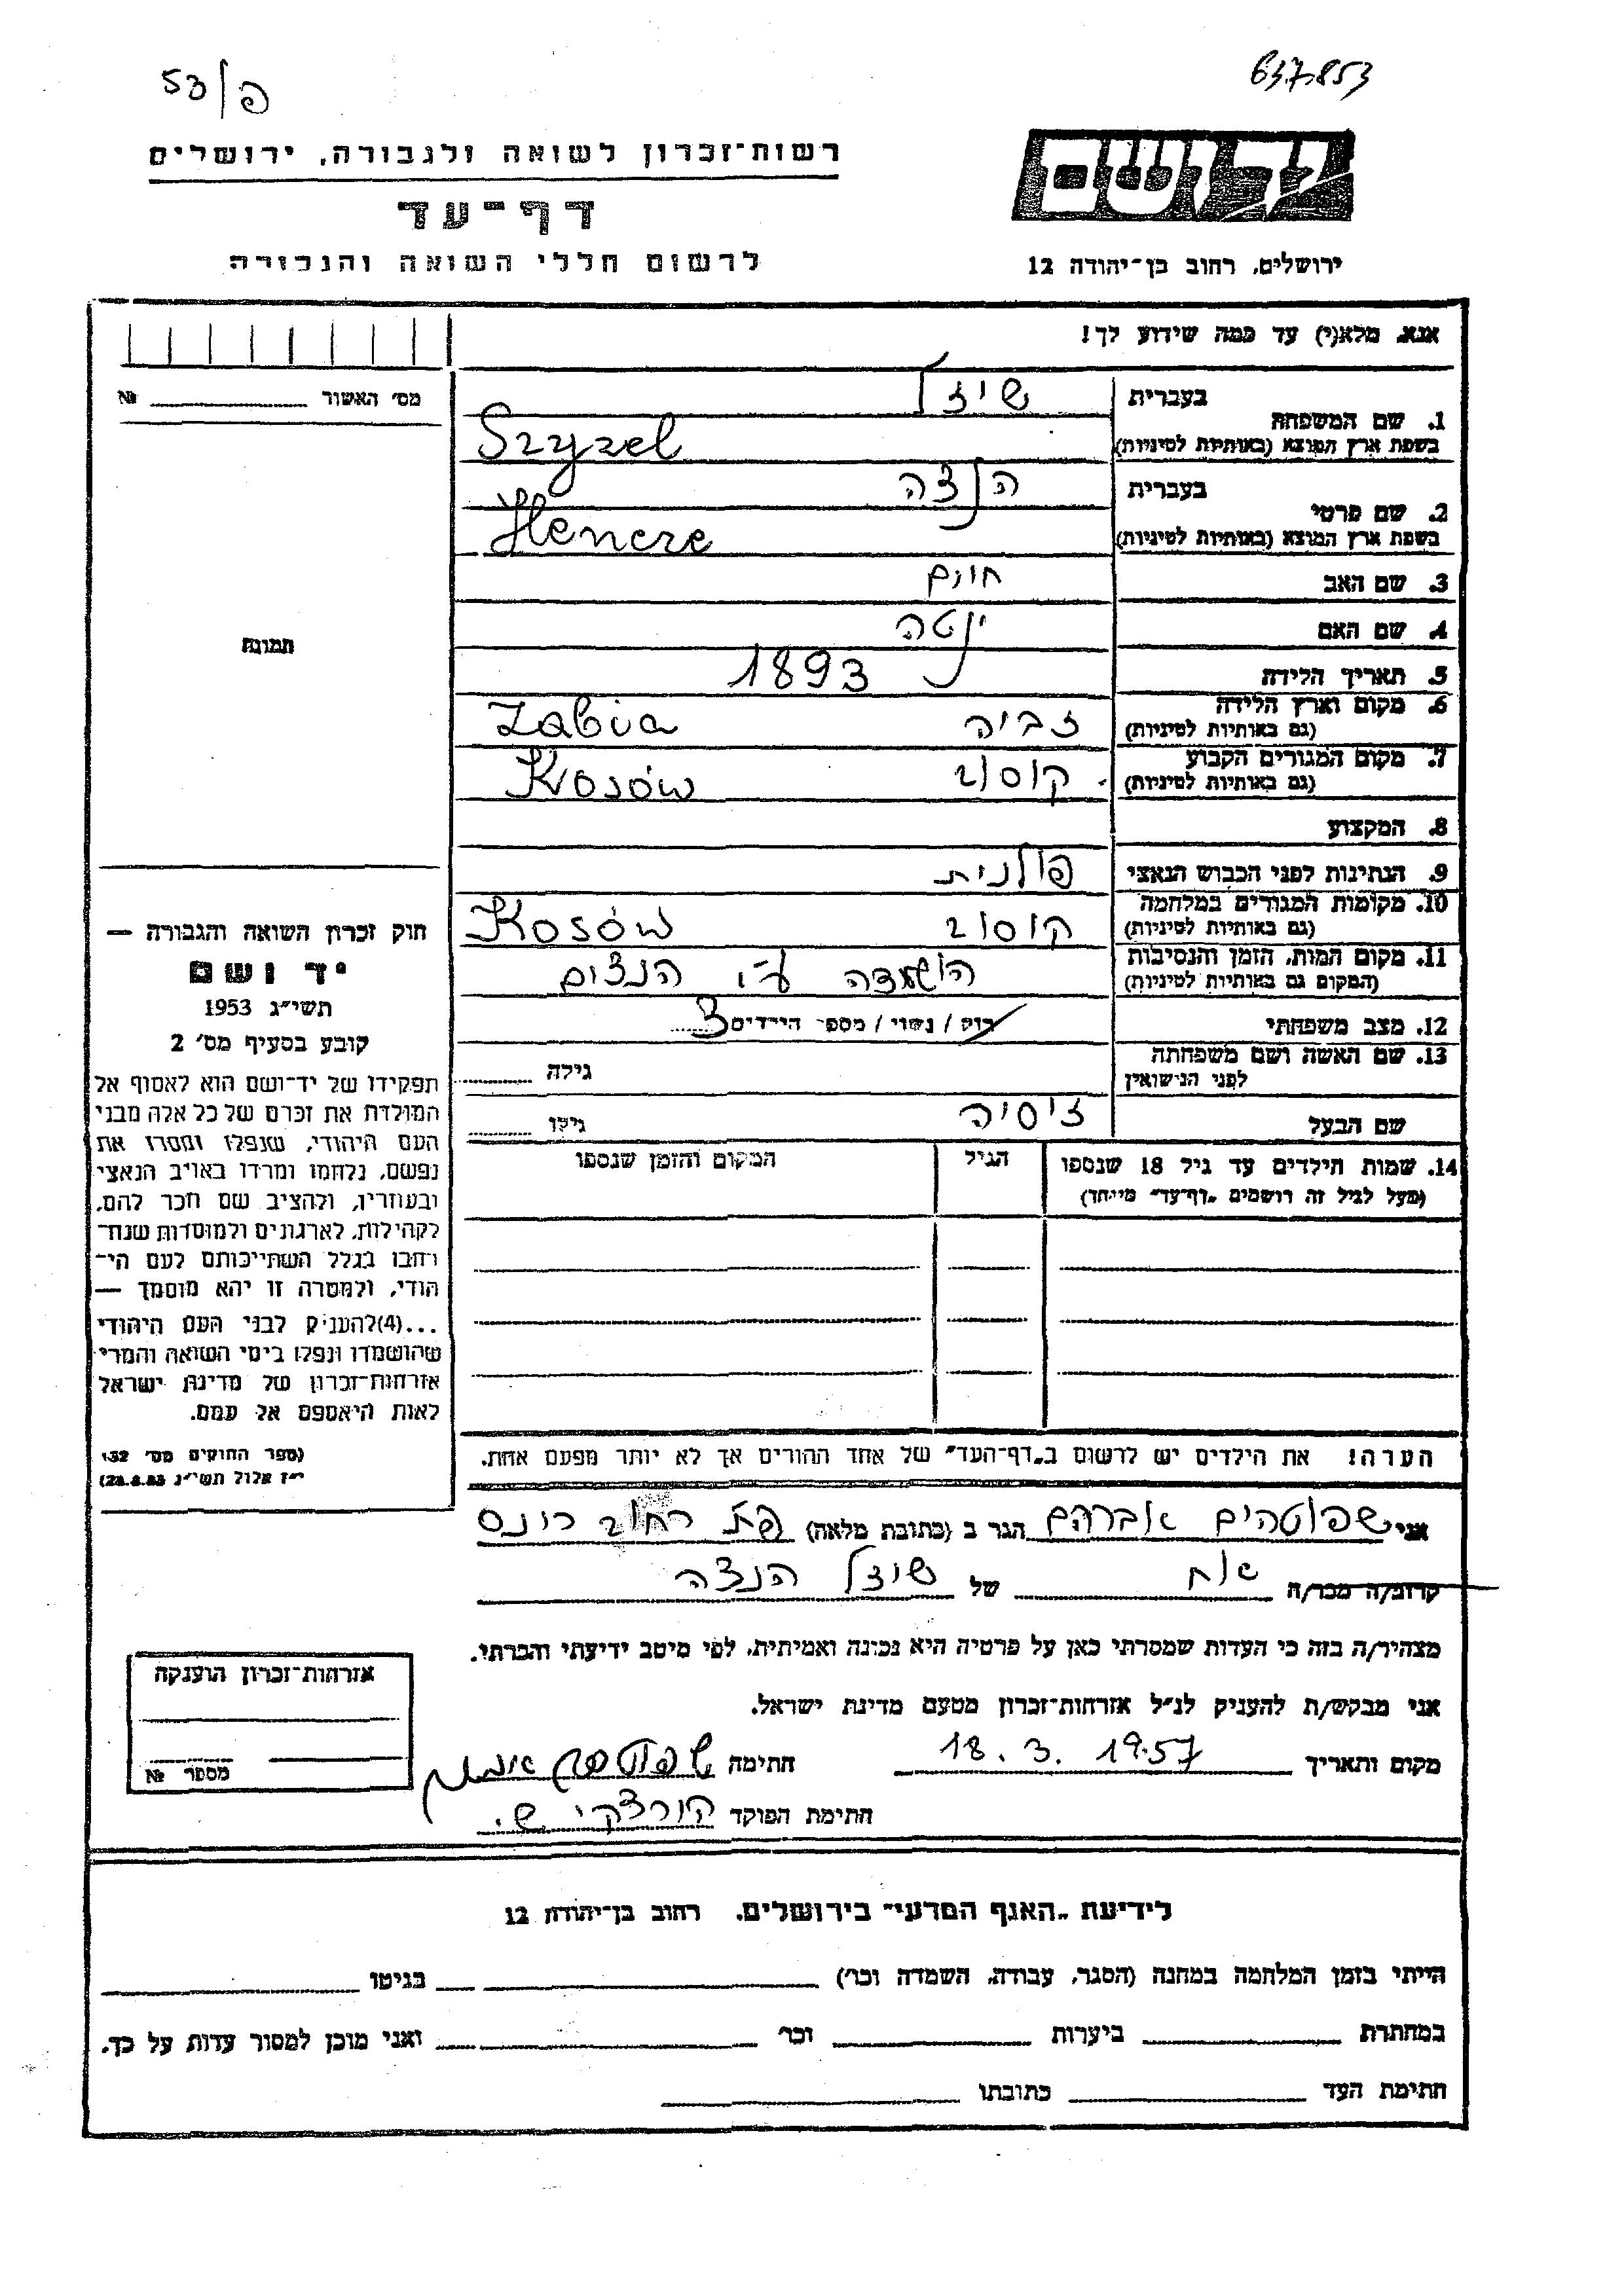 53/פ
637853
רשות־זכרון לשואה ולגבורה, ירושלים
דף־עד
לרשום חללי השואה והגבורה
יד ושם
ירושלים, רחוב בן־יהודה 12
אנא, מלא(י) עד כמה שידוע לך!
מס׳ האשור № 
1. שם המשפחה בעברית שיזל
בשפת ארץ המוצא (באותיות לטיניות) Szyzel
2. שם פרטי בעברית הנצה
בשפת ארץ המוצא (באותיות לטיניות) Hencze
3. שם האב חיים
4. שם האם ינטה
5. תאריך הלידה 1893
6. מקום וארץ הלידה (גם באותיות לטיניות) זביה Zabia
7. מקום המגורים הקבוע (גם באותיות לטיניות) קוסוב Kosów
8. המקצוע
9. הנתינות לפני הכבוש הנאצי פולנית
10. מקומות המגורים במלחמה (גם באותיות לטיניות) קוסוב Kosów
11. מקום המות, הזמן והנסיבות (המקום גם באותיות לטיניות) הושמדה ע״י הנצים
12. מצב משפחתי רוק / נשוי / מספר הילדים 3
13. שם האשה ושם משפחתה לפני הנישואין גילה
שם הבעל זיסיה גילו
14. שמות הילדים עד גיל 18 שנספו הגיל המקום והזמן שנספו
(מעל לגיל זה רושמים „דף־עד״ מיוחד)
הערה! את הילדים יש לרשום ב„דף־העד״ של אחד ההורים אך לא יותר מפעם אחת.
תמונה
חוק זכרון השואה והגבורה —
יד ושם
תשי״ג 1953
קובע בסעיף מס׳ 2
תפקידו של יד־ושם הוא לאסוף אל
המולדת את זכרם של כל אלה מבני
העם היהודי, שנפלו ומסרו את
נפשם, נלחמו ומרדו באויב הנאצי
ובעוזריו, ולהציב שם וזכר להם,
לקהילות, לארגונים ולמוסדות שנח־
רבו בגלל השתייכותם לעם הי־
הודי, ולמטרה זו יהא מוסמך —
...(4)להעניק לבני העם היהודי
שהושמדו ונפלו בימי השואה והמרי
אזרחות־זכרון של מדינת ישראל
לאות היאספם אל עמם.
(ספר החוקים מס׳ 132
י״ז אלול תשי״ג 28.8.53)
אני אברהם הגר ב (כתובת מלאה) פת רחוב
קרוב/ה מכר/ה אח של שיזל הנצה
מצהיר/ה בזה כי העדות שמסרתי כאן על פרטיה היא נכונה ואמיתית, לפי מיטב ידיעתי והכרתי.
אני מבקש/ת להעניק לנ״ל אזרחות־זכרון מטעם מדינת ישראל.
מקום ותאריך 18.3.1957 חתימה
חתימת הפוקד
אזרחות־זכרון הוענקה
מספר №
לידיעת „האגף המדעי״ בירושלים, רחוב בן־יהודה 12
הייתי בזמן המלחמה במחנה (הסגר, עבודה, השמדה וכר׳) בגיטו
במחתרת ביערות וכר׳ ואני מוכן למסור עדות על כך.
חתימת העד כתובתו